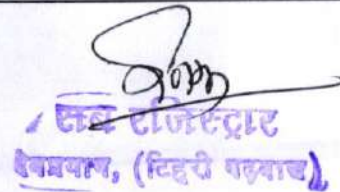 सब रजिस्ट्रार
देवप्रयाग, (टिहरी गढ़वाल)